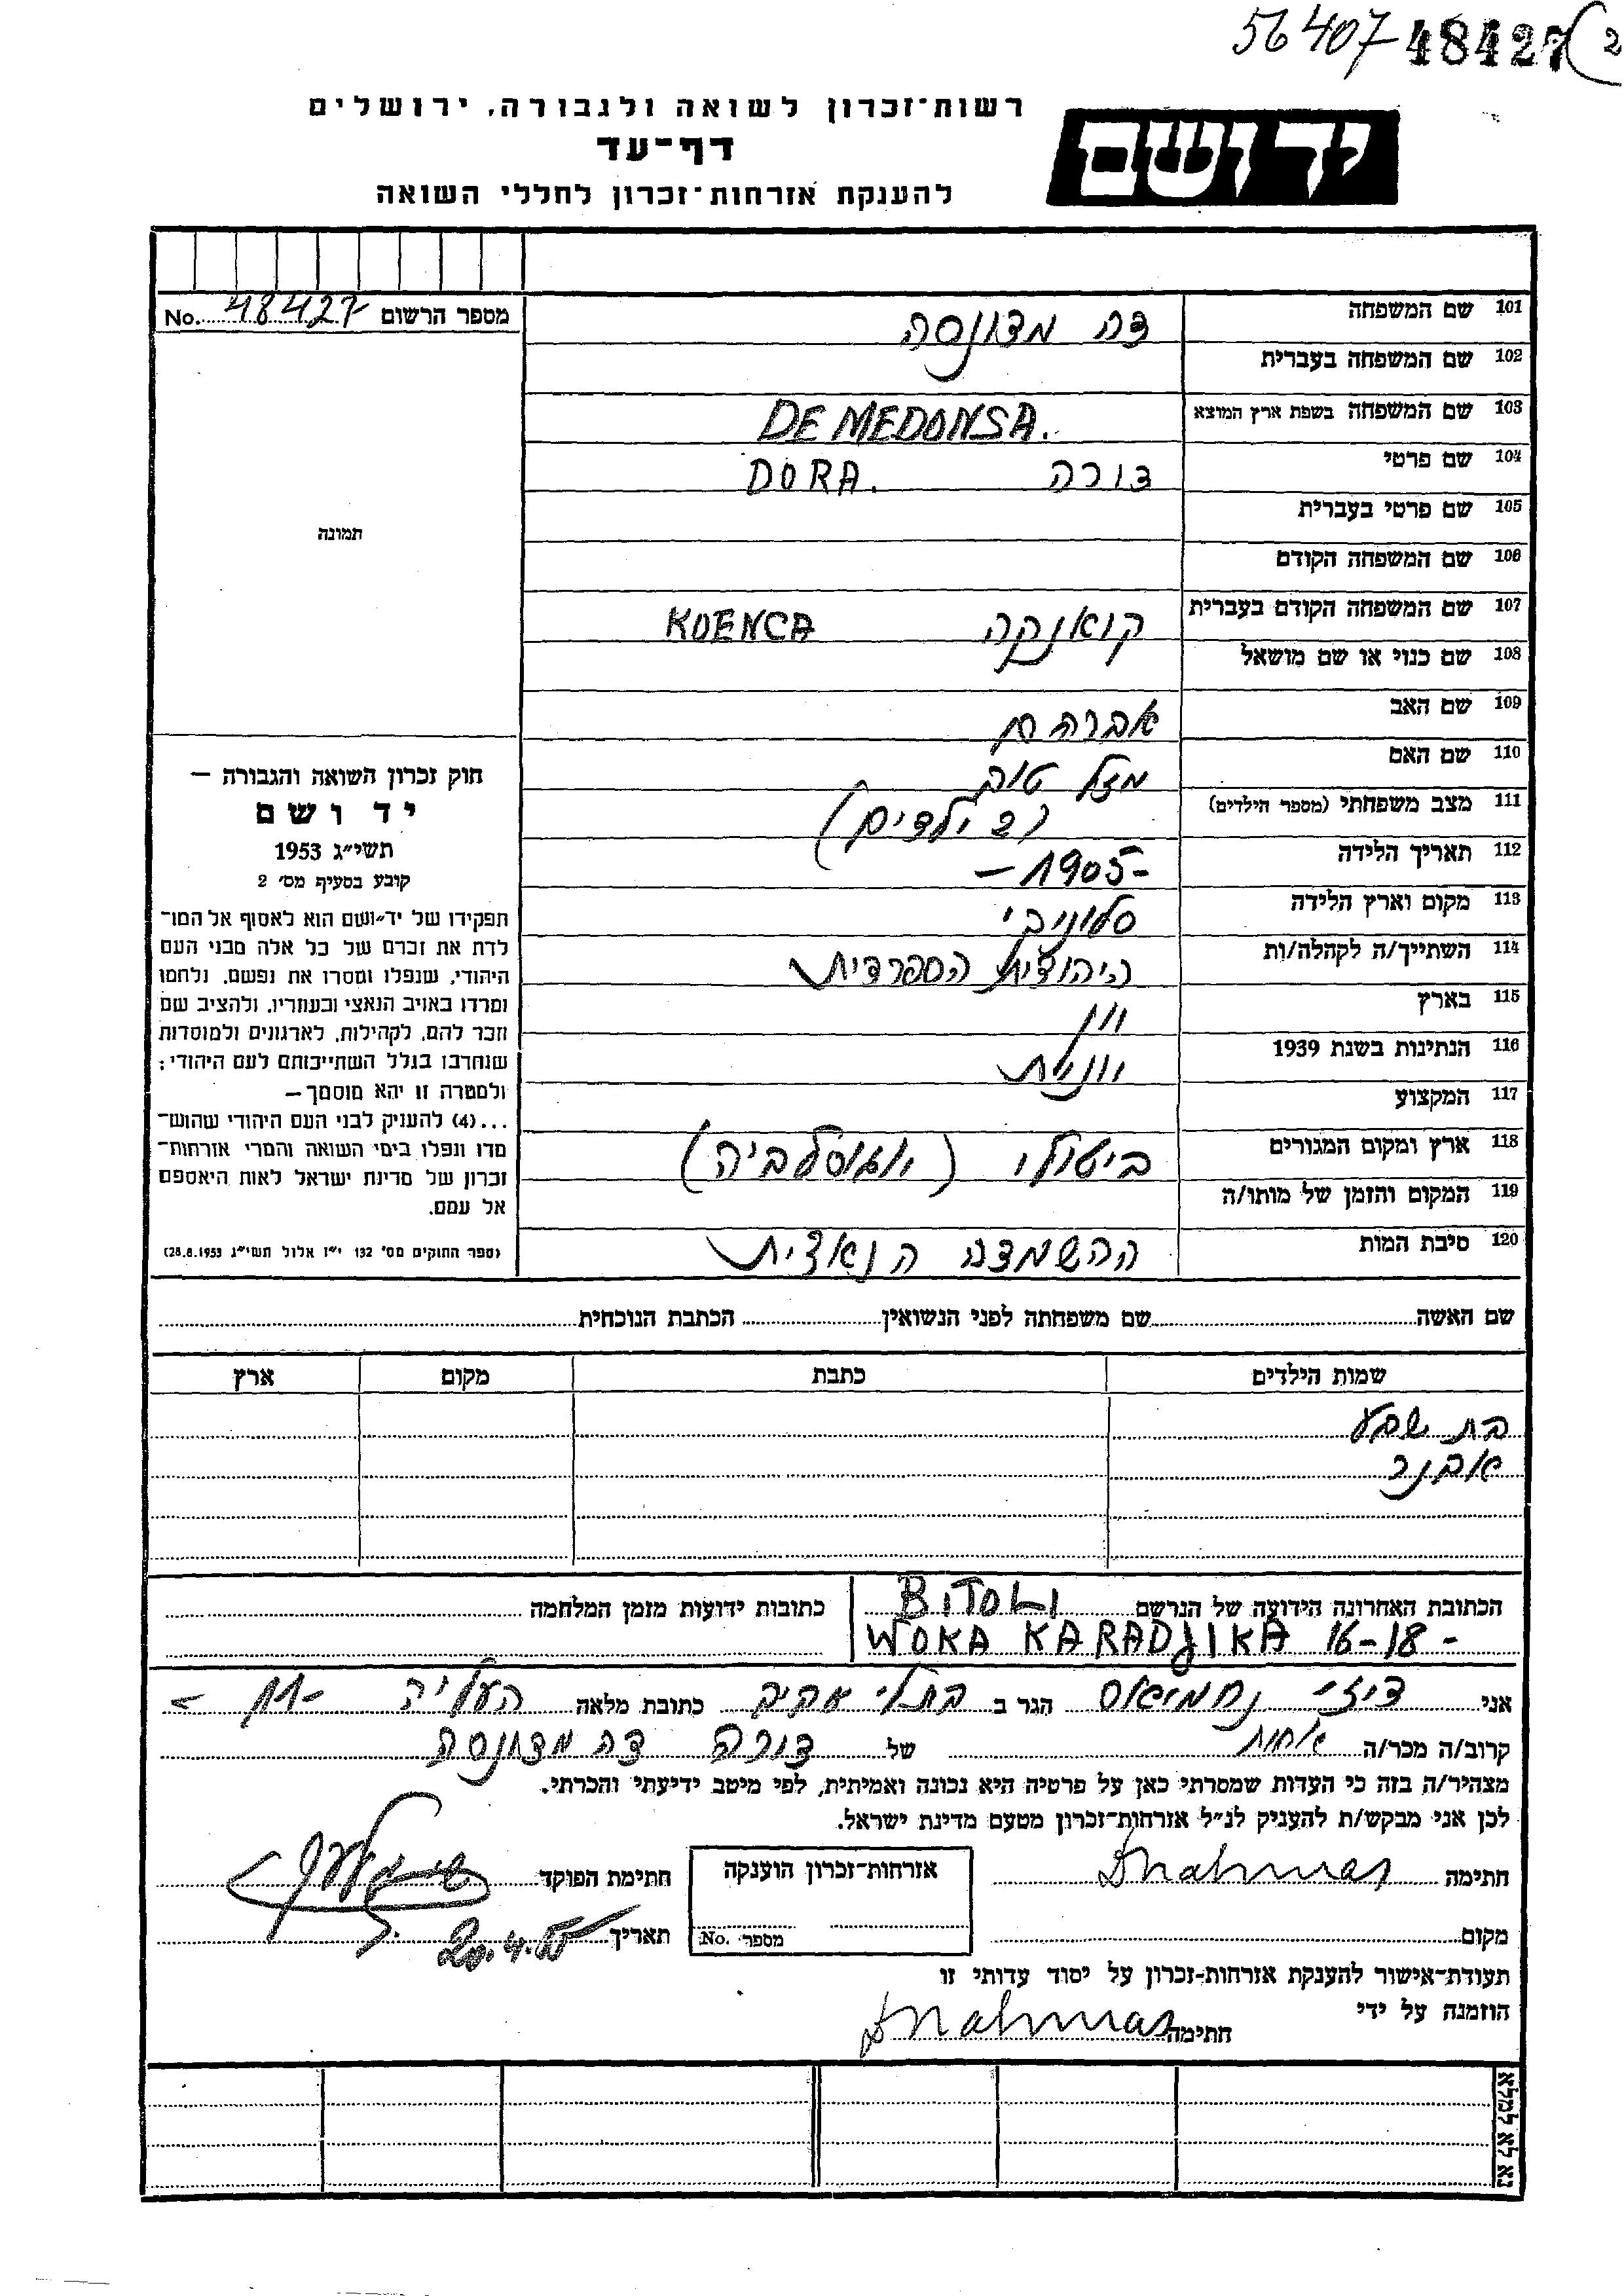 56407 48427 (2
יד ושם
רשות־זכרון לשואה ולגבורה, ירושלים
דף־עד
להענקת אזרחות־זכרון לחללי השואה
מספר הרשום No. 48427
101 שם המשפחה דה מדונסה
102 שם המשפחה בעברית
103 שם המשפחה בשפת ארץ המוצא DE MEDONSA.
104 שם פרטי דורה DORA.
105 שם פרטי בעברית
106 שם המשפחה הקודם
107 שם המשפחה הקודם בעברית קואנקה KOENCA
108 שם כנוי או שם מושאל
109 שם האב אברהם
110 שם האם מזל טוב
111 מצב משפחתי (מספר הילדים) (2 ילדים)
112 תאריך הלידה -1905-
113 מקום וארץ הלידה סלוניכי
114 השתייך/ה לקהלה/ות היהודית הספרדית
115 בארץ יוון
116 הנתינות בשנת 1939 יוונית
117 המקצוע
118 ארץ ומקום המגורים ביטולי (יוגוסלביה)
119 המקום והזמן של מותו/ה
120 סיבת המות ההשמדה הנאצית
תמונה
חוק זכרון השואה והגבורה —
יד ושם
תשי״ג 1953
קובע בסעיף מס׳ 2
תפקידו של יד־ושם הוא לאסוף אל המו־
לדת את זכרם של כל אלה מבני העם
היהודי, שנפלו ומסרו את נפשם, נלחמו
ומרדו באויב הנאצי ובעוזריו, ולהציב שם
וזכר להם, לקהילות, לארגונים ולמוסדות
שנחרבו בגלל השתייכותם לעם היהודי;
ולמטרה זו יהא מוסמך —
...(4) להעניק לבני העם היהודי שהוש־
מדו ונפלו בימי השואה והמרי אזרחות־
זכרון של מדינת ישראל לאות היאספם
אל עמם.
(ספר החוקים מס׳ 132 י״ז אלול תשי״ג 28.8.1953)
שם האשה שם משפחתה לפני הנשואין הכתבת הנוכחית
שמות הילדים כתבת מקום ארץ
בת שבע
אבנר
הכתובת האחרונה הידועה של הנרשם BITOLI
WOKA KARADJIKA 16-18-
כתובות ידועות מזמן המלחמה
אני דיזי נחמיאס הגר ב בתל אביב כתובת מלאה העליה -11-
קרוב/ה מכר/ה אחות של דורה דה מדונסה
מצהיר/ה בזה כי העדות שמסרתי כאן על פרטיה היא נכונה ואמיתית, לפי מיטב ידיעתי והכרתי.
לכן אני מבקש/ת להעניק לנ״ל אזרחות־זכרון מטעם מדינת ישראל.
חתימה Dnahmias אזרחות־זכרון הוענקה חתימת הפוקד
מקום מספר No. תאריך 20.4.55
תעודת־אישור להענקת אזרחות־זכרון על יסוד עדותי זו
הוזמנה על ידי
חתימה Dnahmias
נא לא למלא